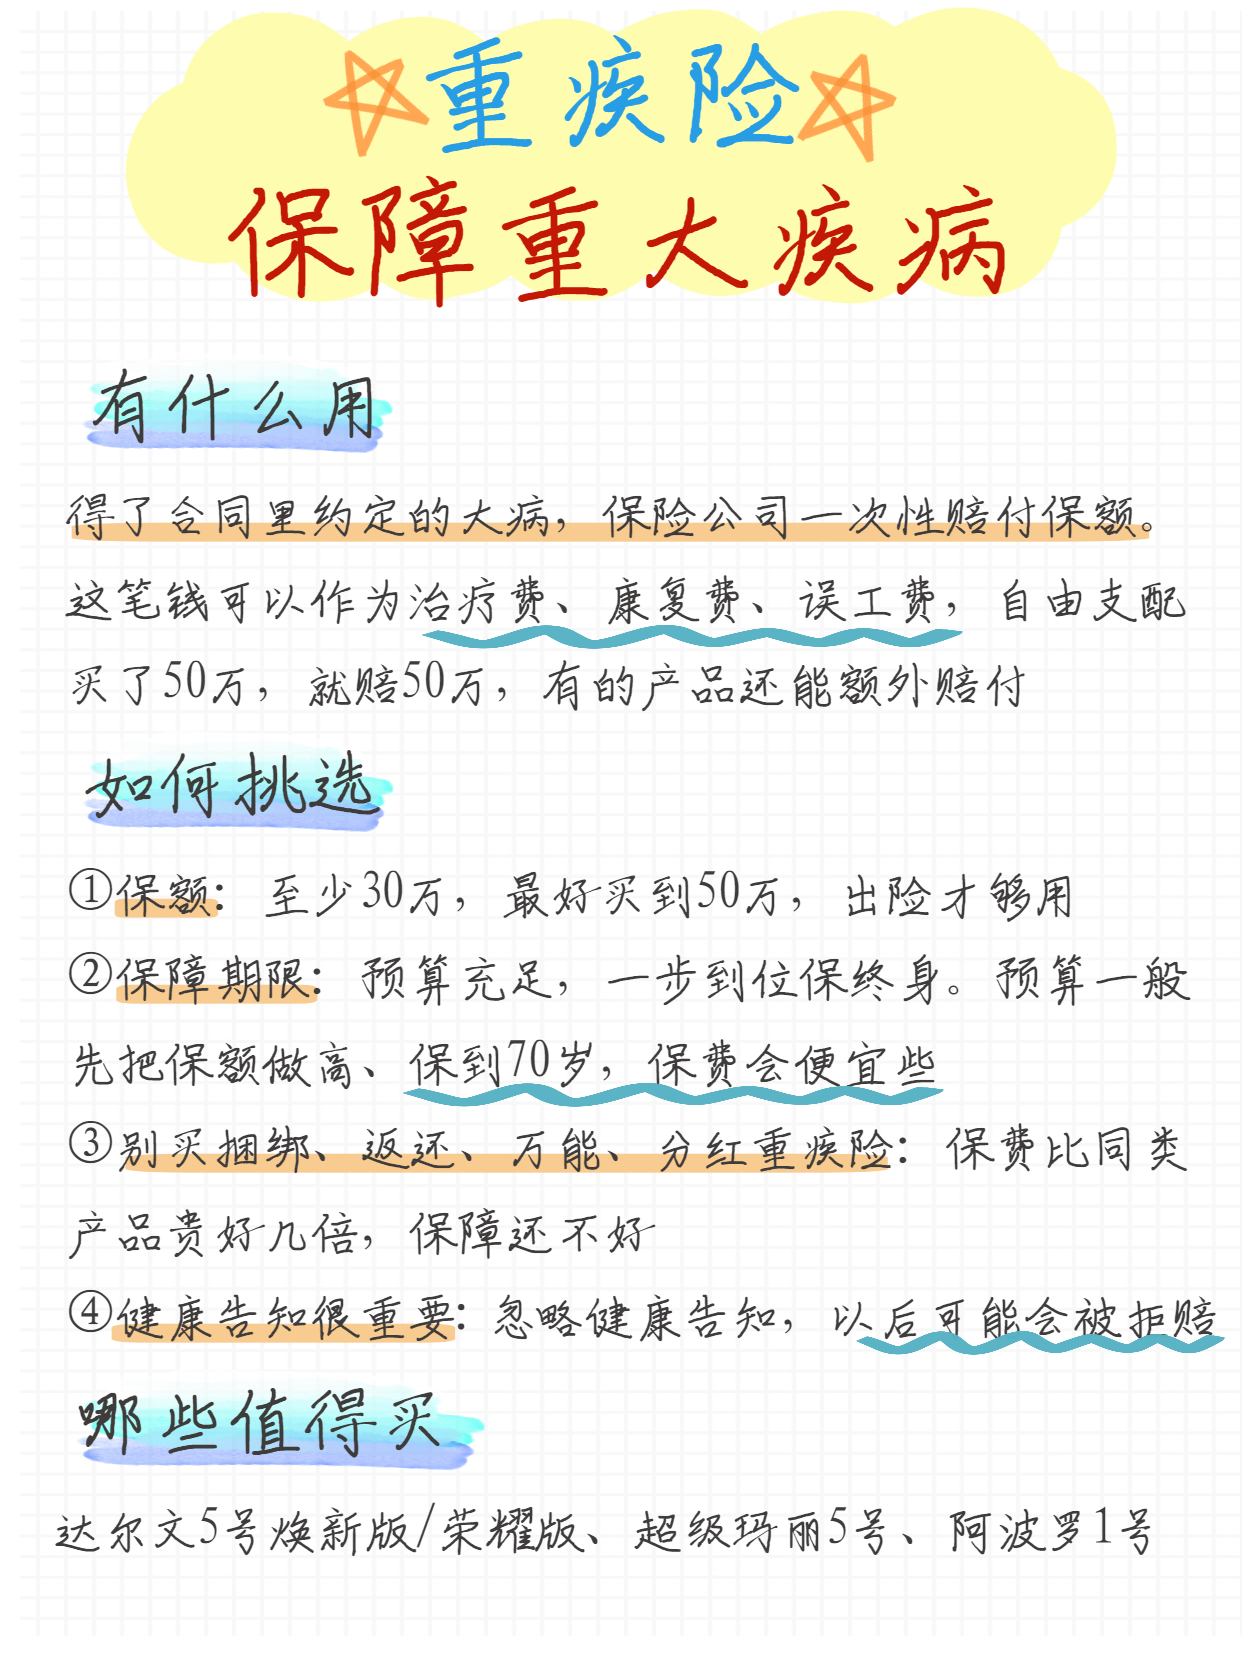 重疾险
保障重大疾病
有什么用
得了合同里约定的大病，保险公司一次性赔付保额。
这笔钱可以作为治疗费、康复费、误工费，自由支配
买了50万，就赔50万，有的产品还能额外赔付
如何挑选
①保额：至少30万，最好买到50万，出险才够用
②保障期限：预算充足，一步到位保终身。预算一般
先把保额做高、保到70岁，保费会便宜些
③别买捆绑、返还、万能、分红重疾险：保费比同类
产品贵好几倍，保障还不好
④健康告知很重要：忽略健康告知，以后可能会被拒赔
哪些值得买
达尔文5号焕新版/荣耀版、超级玛丽5号、阿波罗1号